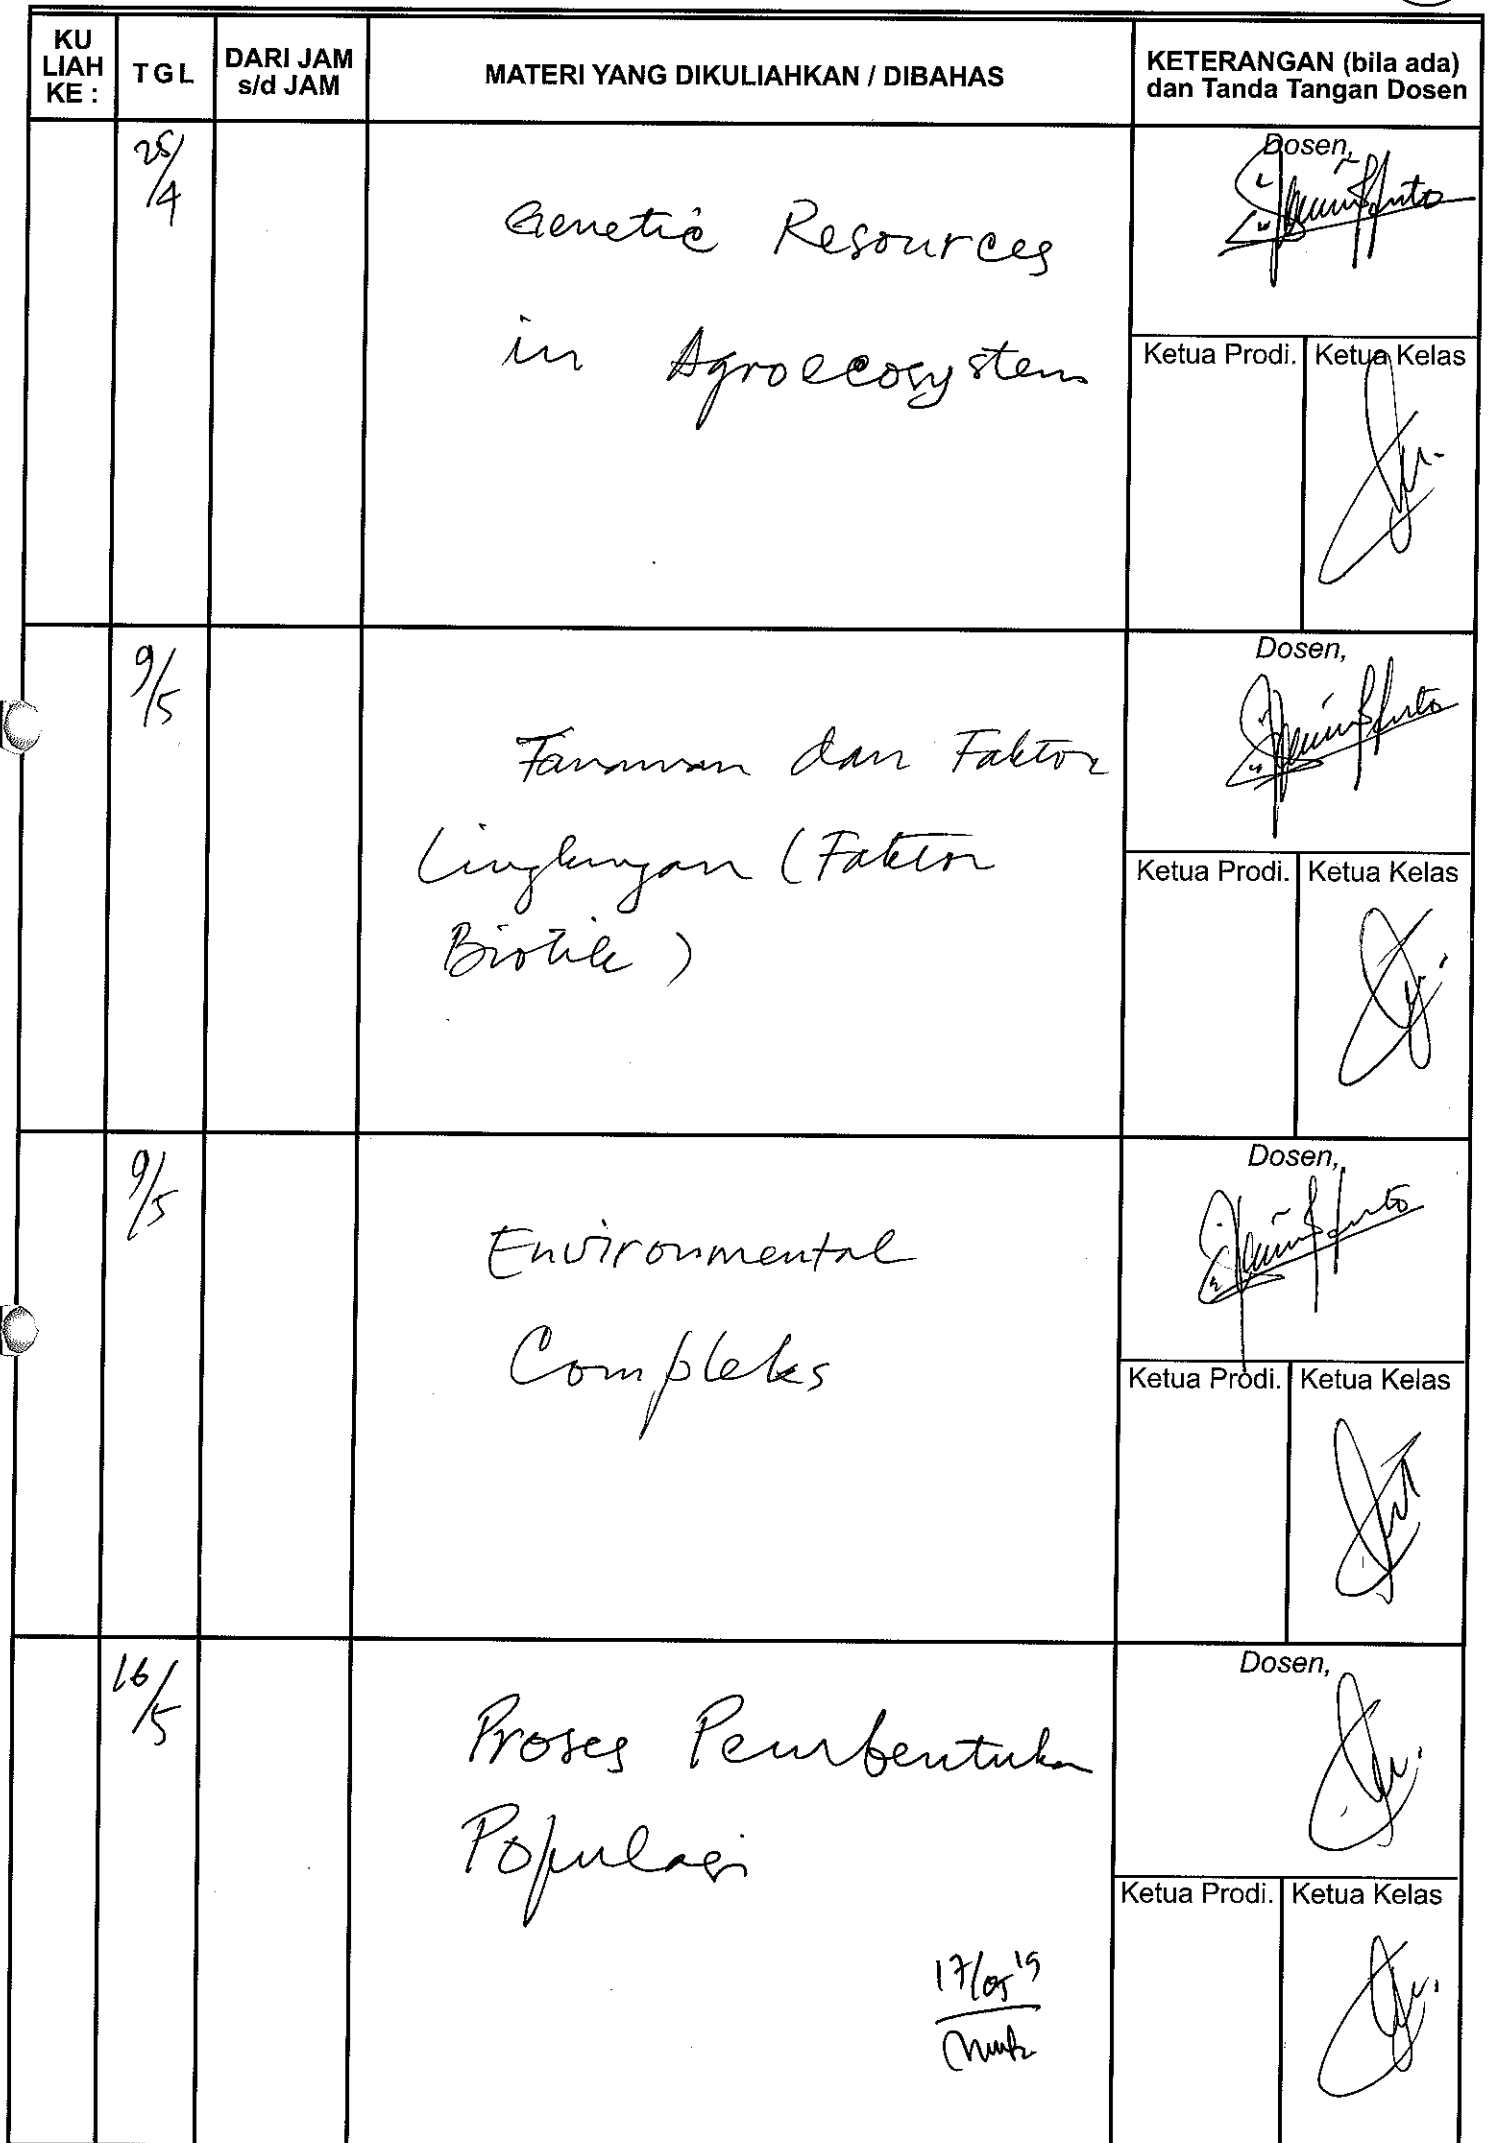 KU LIAH KE :
TGL
DARI JAM s/d JAM
MATERI YANG DIKULIAHKAN / DIBAHAS
KETERANGAN (bila ada) dan Tanda Tangan Dosen
25/4
Genetic Resources
in Agroecosystem
Dosen,
Ketua Prodi.
Ketua Kelas
9/5
Tanaman dan Faktor
Lingkungan (Faktor
Biotik)
Dosen,
Ketua Prodi.
Ketua Kelas
9/5
Environmental
Compleks
Dosen,
Ketua Prodi.
Ketua Kelas
16/5
Proses Pembentukan
Populasi
17/05 '19
Dosen,
Ketua Prodi.
Ketua Kelas